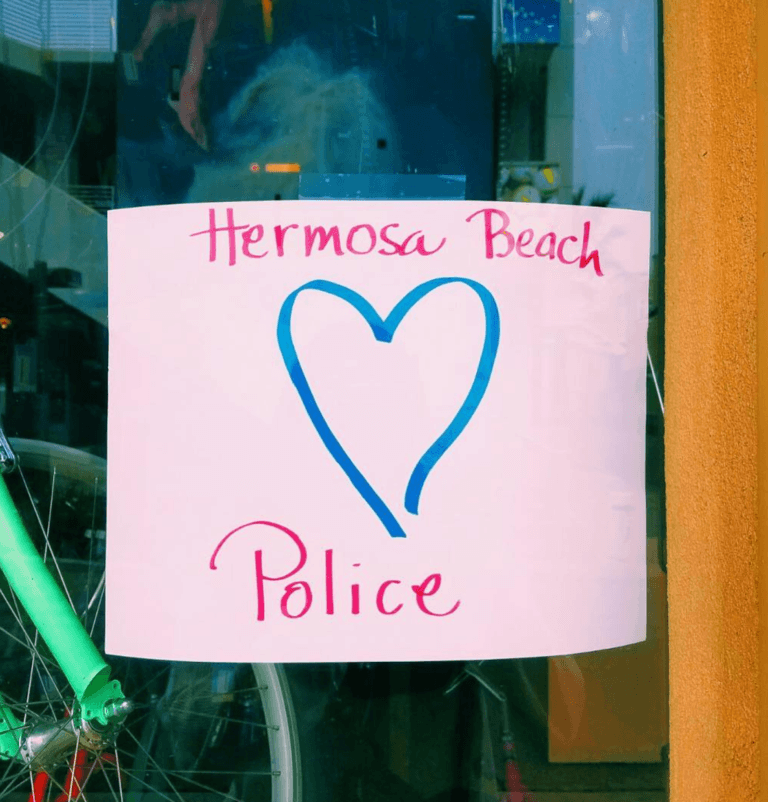 Hermosa Beach
Police